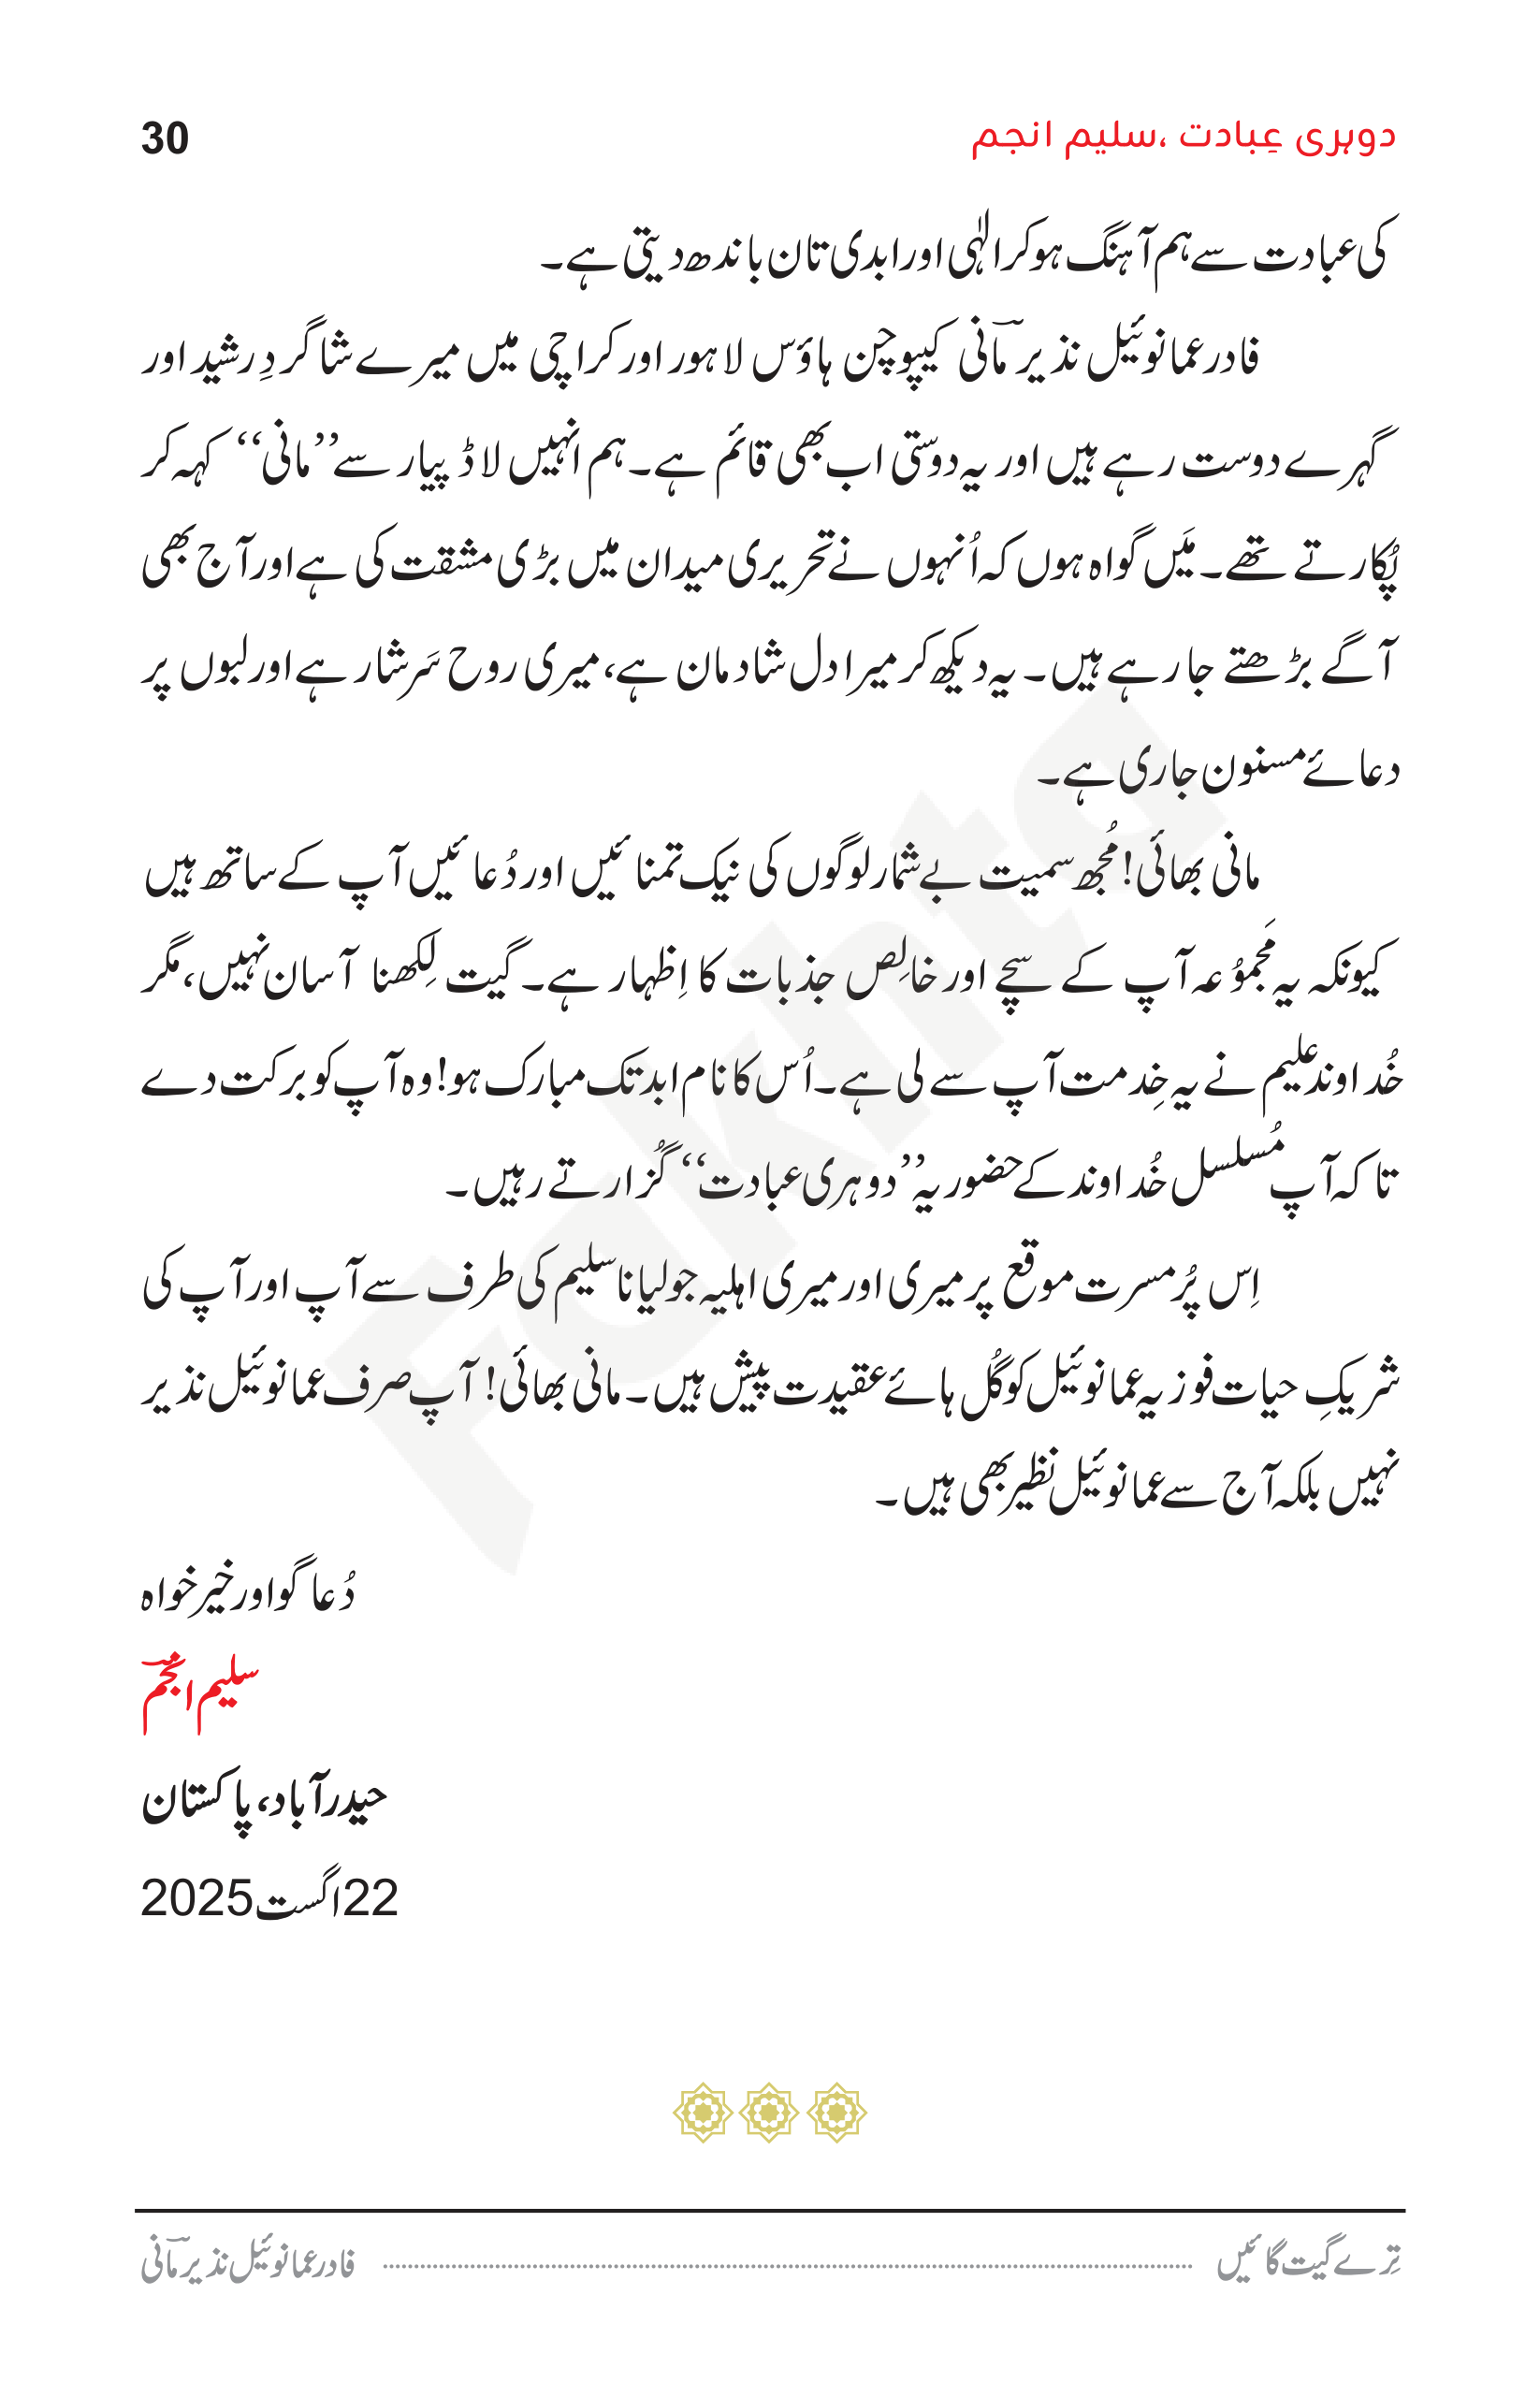 دوہری عِبادت ،سلیم انجم
30
کی عبادت سے ہم آہنگ ہو کر الٰہی اور ابدی تان باندھ دیتی ہے۔
فادر عمانوئیل نذیر مانیؔ کیپوچن ہاؤس لاہور اور کراچی میں میرے شاگردِ رشید اور
گہرے دوست رہے ہیں اور یہ دوستی اب بھی قائم ہے۔ ہم انہیں لاڈ پیار سے ’’مانی‘‘ کہہ کر
پُکارتے تھے۔ مَیں گواہ ہوں کہ اُنہوں نے تحریری میدان میں بڑی مشقت کی ہے اور آج بھی
آگے بڑھتے جا رہے ہیں۔ یہ دیکھ کر میرا دل شادمان ہے، میری روح سَرشار ہے اور لبوں پر
دعائے مسنون جاری ہے۔
مانی بھائی! مُجھ سمیت بے شمار لوگوں کی نیک تمنائیں اور دُعائیں آپ کے ساتھ ہیں
کیونکہ یہ مَجموُعہ آپ کے سچے اور خالِص جذبات کا اِظہار ہے۔ گیت لِکھنا آسان نہیں، مگر
خُداوند علیم نے یہ خِدمت آپ سے لی ہے۔ اُس کا نام ابد تک مبارک ہو! وہ آپ کو برکت دے
تاکہ آپ مُسلسل خُداوند کے حضور یہ ’’دوہری عبادت‘‘ گُزارتے رہیں۔
اِس پُر مسرت موقع پر میری اور میری اہلیہ جولیانا سلیم کی طرف سے آپ اور آپ کی
شریکِ حیات فوزیہ عمانوئیل کو گُل ہائے عقیدت پیش ہیں۔ مانی بھائی! آپ صرف عمانوئیل نذیر
نہیں بلکہ آج سے عمانوئیل نظیر بھی ہیں۔
دُعا گو اور خیر خواہ
سلیم انجمؔ
حیدرآباد، پاکستان
22اگست2025
تِرے گیت گائیں
فادر عمانوئیل نذیر مانیؔ
Fakhta